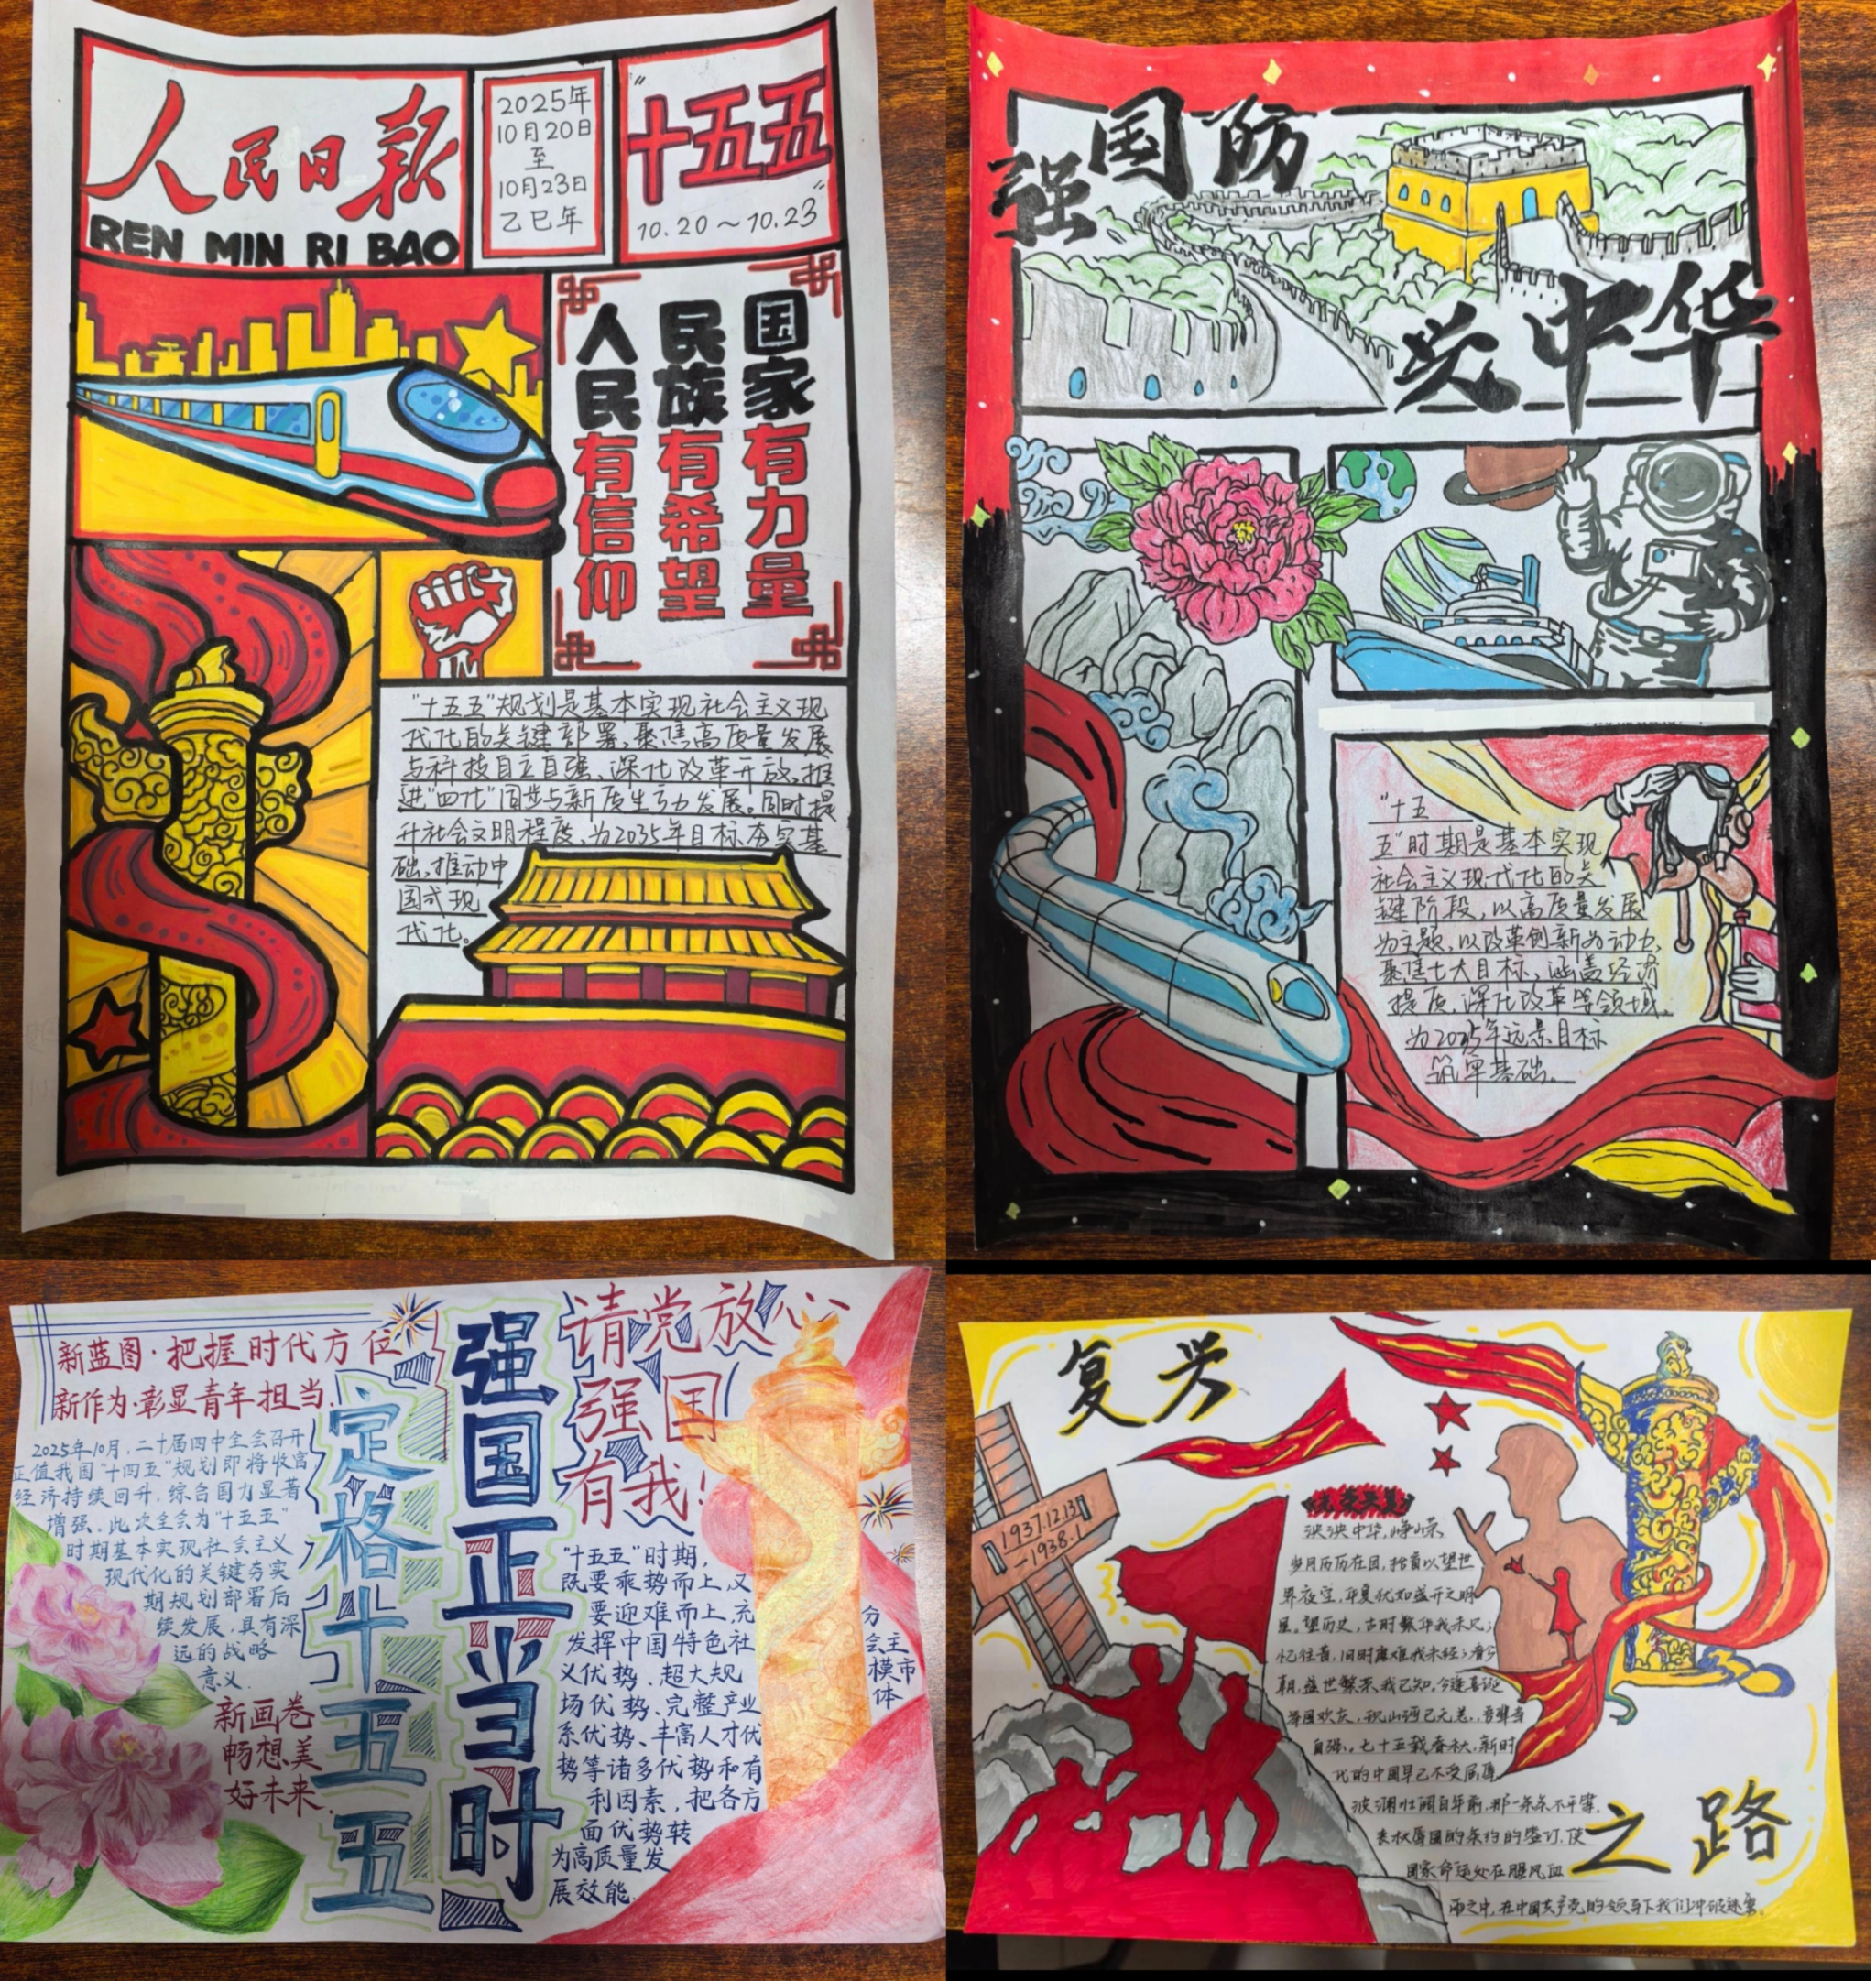 人民日报
REN MIN RI BAO
2025年
10月20日
至
10月23日
乙巳年
"十五五"
10.20～10.23
国家有力量
民族有希望
人民有信仰
"十五五"规划是基本实现社会主义现
代化的关键部署,聚焦高质量发展
与科技自立自强、深化改革开放,推
进"四化"同步与新质生产力发展。同时提
升社会文明程度、为2035年目标夯实基
础,推动中
国式现
代化。
强国防
兴中华
"十五
五"时期是基本实现
社会主义现代化的关
键阶段,以高质量发展
为主题,以改革创新为动力,
聚焦七大目标,涵盖经济
提质,深化改革等领域,
为2035年远景目标
筑牢基础。
新蓝图·把握时代方位
新作为·彰显青年担当.
2025年10月,二十届四中全会召开
正值我国"十四五"规划即将收官
经济持续回升,综合国力显著
增强、此次全会为"十五五"
时期基本实现社会主义
现代化的关键夯实
期规划部署后
续发展,具有深
远的战略
意义.
新画卷
畅想美
好未来.
定格十五五
强国正当时
请党放心
强国
有我!
"十五五"时期,
既要乘势而上,又
要迎难而上,充分
发挥中国特色社会主
义优势、超大规模市
场优势、完整产业体
系优势、丰富人才优
势等诸多优势和有
利因素,把各方
面优势转
为高质量发
展效能.
复兴
之路
1937.12.13
-1938.1
泱泱中华,峥嵘
岁月历历在目,抬首以望世
界夜空,华夏犹如盛开之明
星。望历史,古时繁华我未见;
忆往昔,旧时磨难我未经;看今
朝,盛世繁荣我已知,今逢喜诞
举国欢庆,祝山河已无恙,吾辈当
自强。七十五载春秋,新时
代的中国早已不受屈辱
波澜壮阔百年前,那一条条不平等,
丧权辱国的条约的签订,使
国家命运处在腥风血
雨之中,在中国共产党的领导下我们冲破迷雾。